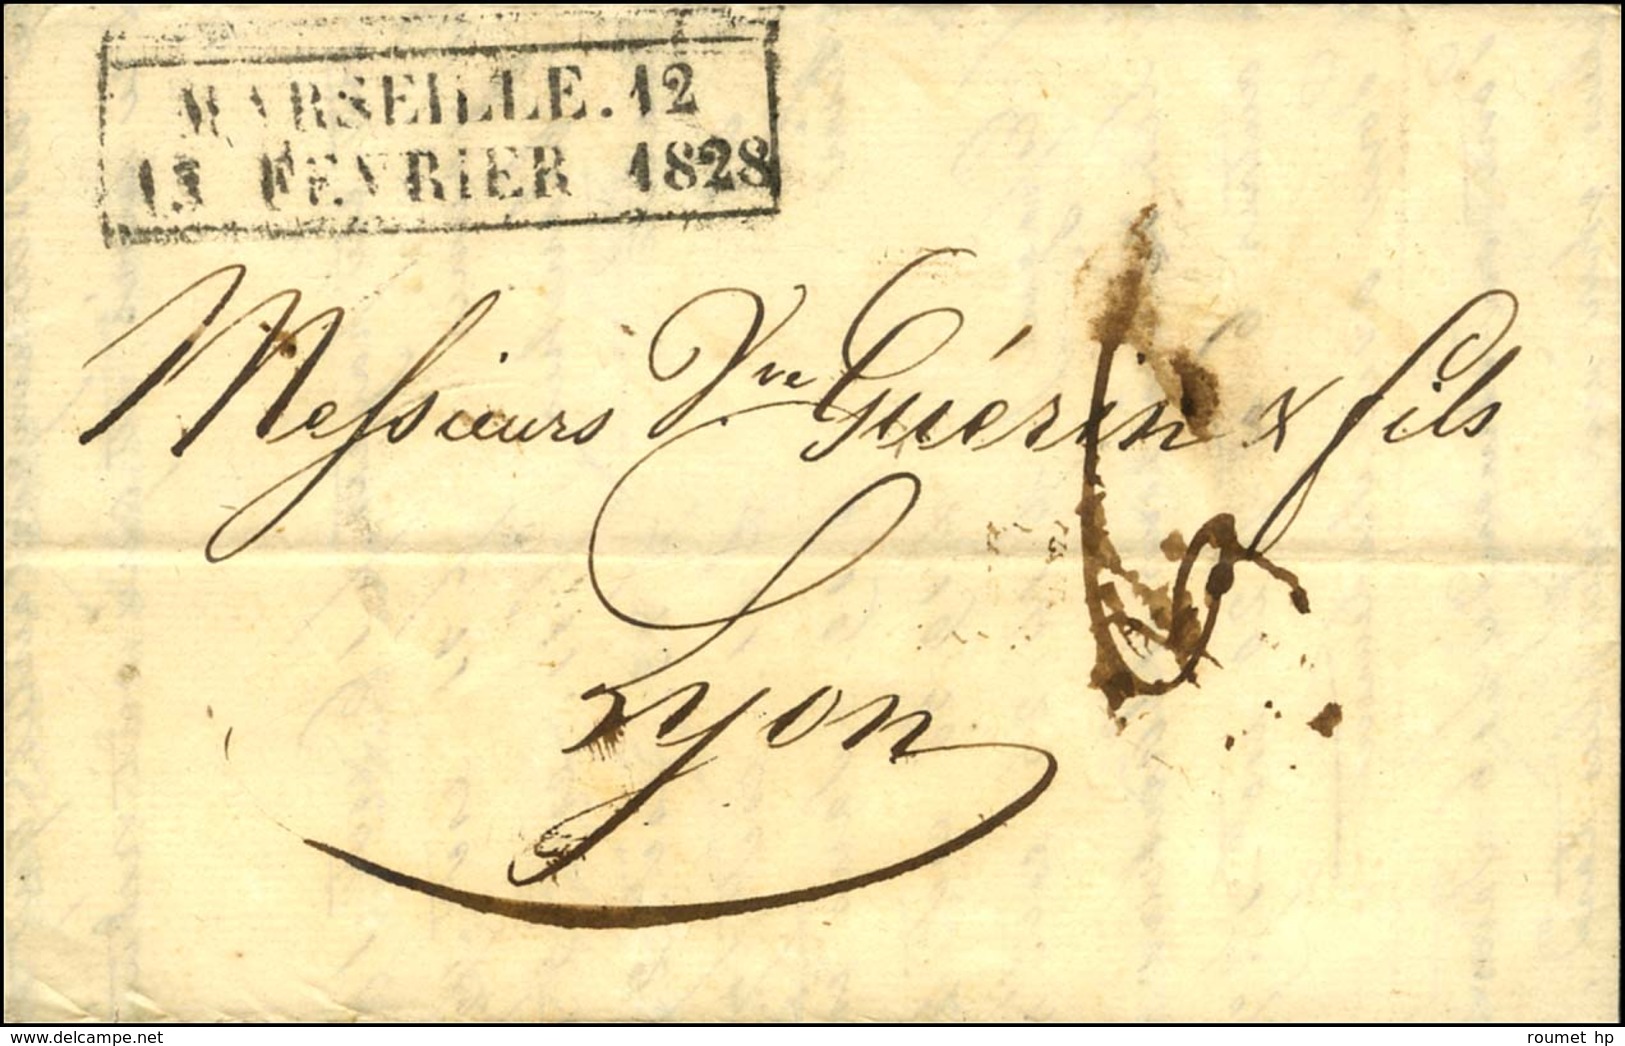 MARSEILLE.12
13 FEVRIER 1828
Messieurs Vve Guérin & fils
6
Lyon
roumet hp